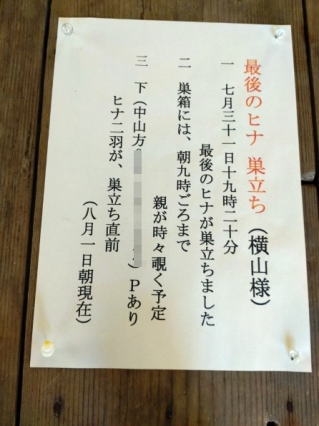 最後のヒナ 巣立ち（横山様）
一 七月三十一日十九時二十分
最後のヒナが巣立ちました
二 巣箱には、朝九時ごろまで
親が時々覗く予定
三 下（中山方 ）Ｐあり
ヒナ二羽が、巣立ち直前
（八月一日朝現在）